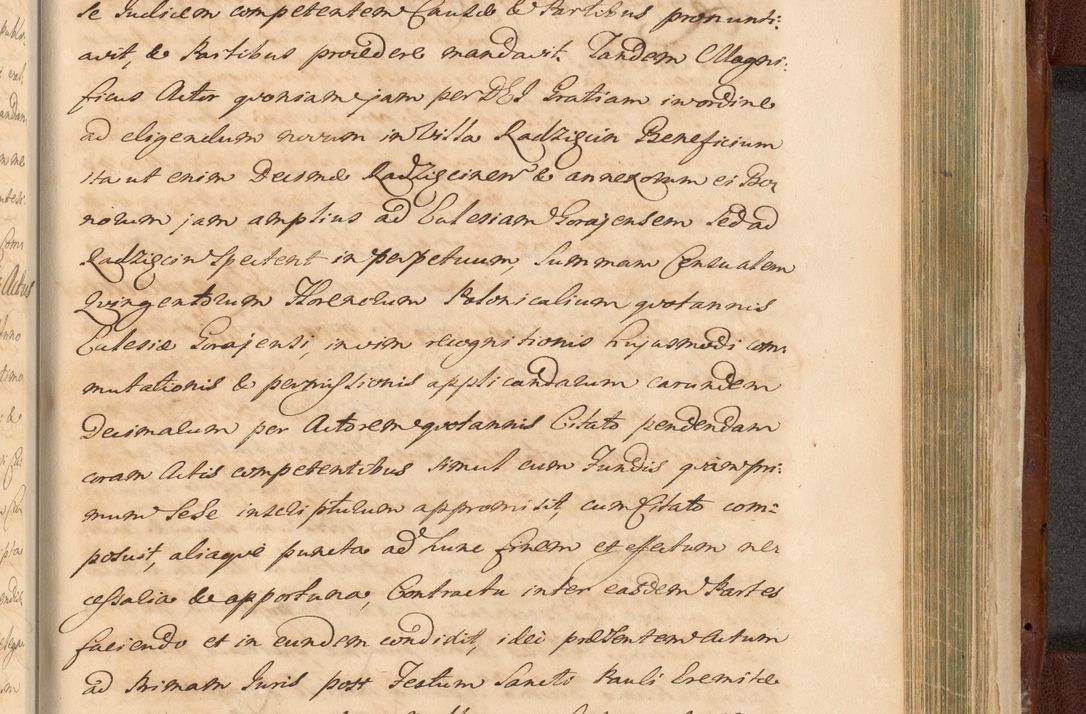 se Judicem competentem Causae & Partibus pronunti:
avit, & Partibus procedere mandavit. Tandem Magni:
ficus Actor quoniam jam per DEI Gratiam in ordine
ad eligendum novum in Villa Radzięcin Beneficium
ita ut enim Decimae Radzięcinen & annexorum ei Bo
norum jam amplius ad Ecclesiam Gorajensem sed ad
Radzięcin spectent in perpetuum, Summam Censualem
Quingentorum Florenorum Polonicalium quotannis
Ecclesiae Gorajensi, in vim recognitionis hujusmodi com:
mutationis & permissionis applicandarum earundem
Decimarum per Actorem quotannis Citato pendendam
coram Actis competentibus simul cum Fundis quam pri:
mum sese inscripturum appromisit, cum Citato com:
posuit, aliaque puncta ad hunc finem et effectum ne
cessaria & opportuna, Contractu inter easdem Partes
faciendo et in eundem condixit, ideo praesentem Actum
ad Primam Juris post Festum Sancti Pauli Eremitae